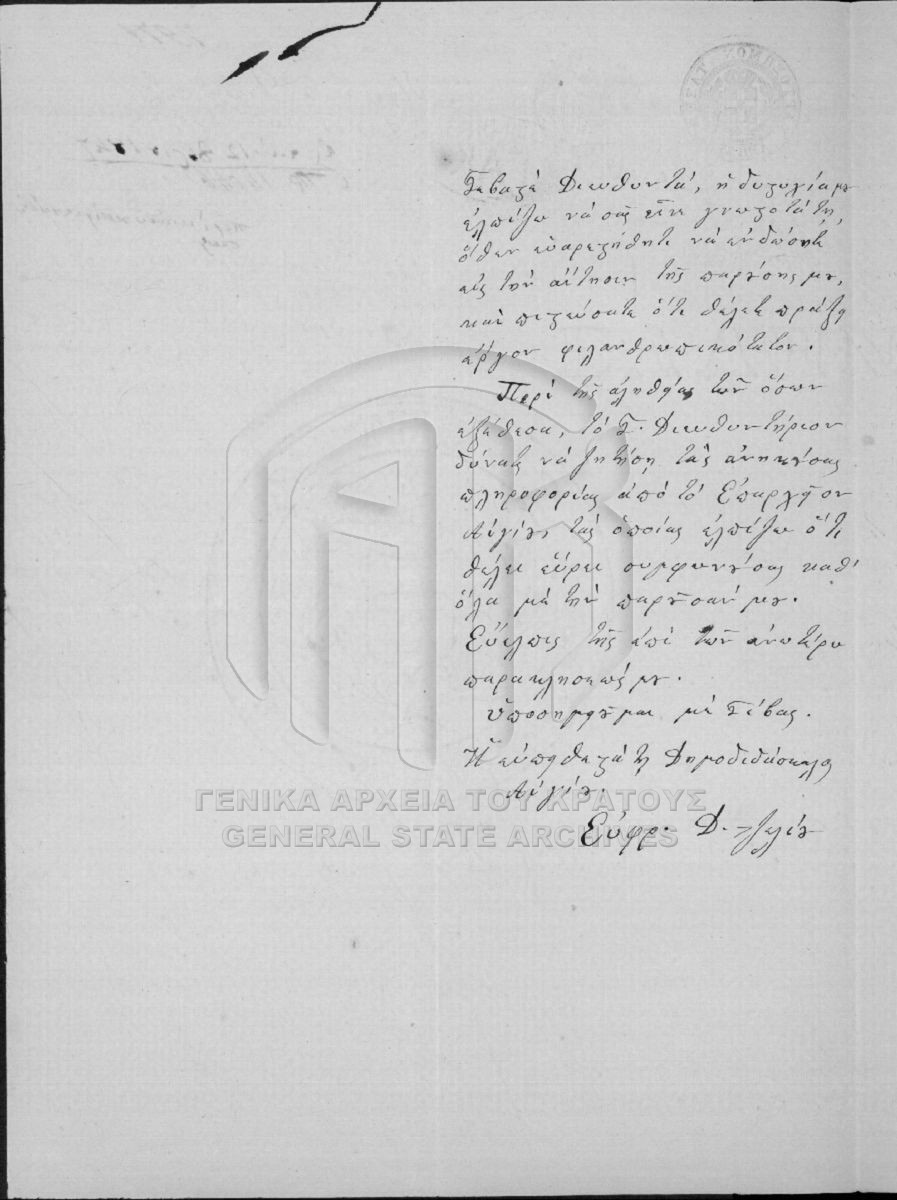 Σεβαστὲ Διευθυντά, ἡ δυστυχία μου
ἐλπίζω νὰ σᾶς εἶνε γνωστοτάτη,
ὅθεν εὐαρεστήθητε νὰ ἐνδώσητε
εἰς τὴν αἴτησιν τῆς παρούσης μου,
καὶ πιστεύσατε ὅτι θέλετε πράξῃ
ἔργον φιλανθρωπικότατον.
Περὶ τῆς ἀληθείας τῶν ὅσων
ἐξέθεσα, τὸ Σ. Διευθυντήριον
δύναται νὰ ζητήσῃ τὰς ἀνηκούσας
πληροφορίας ἀπὸ τὸ Ἐπαρχεῖον
Αἰγίου, τὰς ὁποίας ἐλπίζω ὅτι
θέλει εὕρει συμφωνούσας καθ'
ὅλα μὲ τὴν παροῦσάν μου.
Εὔελπις τῆς ἐπὶ τῶν ἀνωτέρω
παρακλήσεώς μου.
ὑποσημειοῦμαι μὲ Σέβας.
Ἡ εὐπειθεστάτη Δημοδιδάσκαλος
Αἰγίου.
Εὐφρ. Δ.
ΓΕΝΙΚΑ ΑΡΧΕΙΑ ΤΟΥ ΚΡΑΤΟΥΣ
GENERAL STATE ARCHIVES